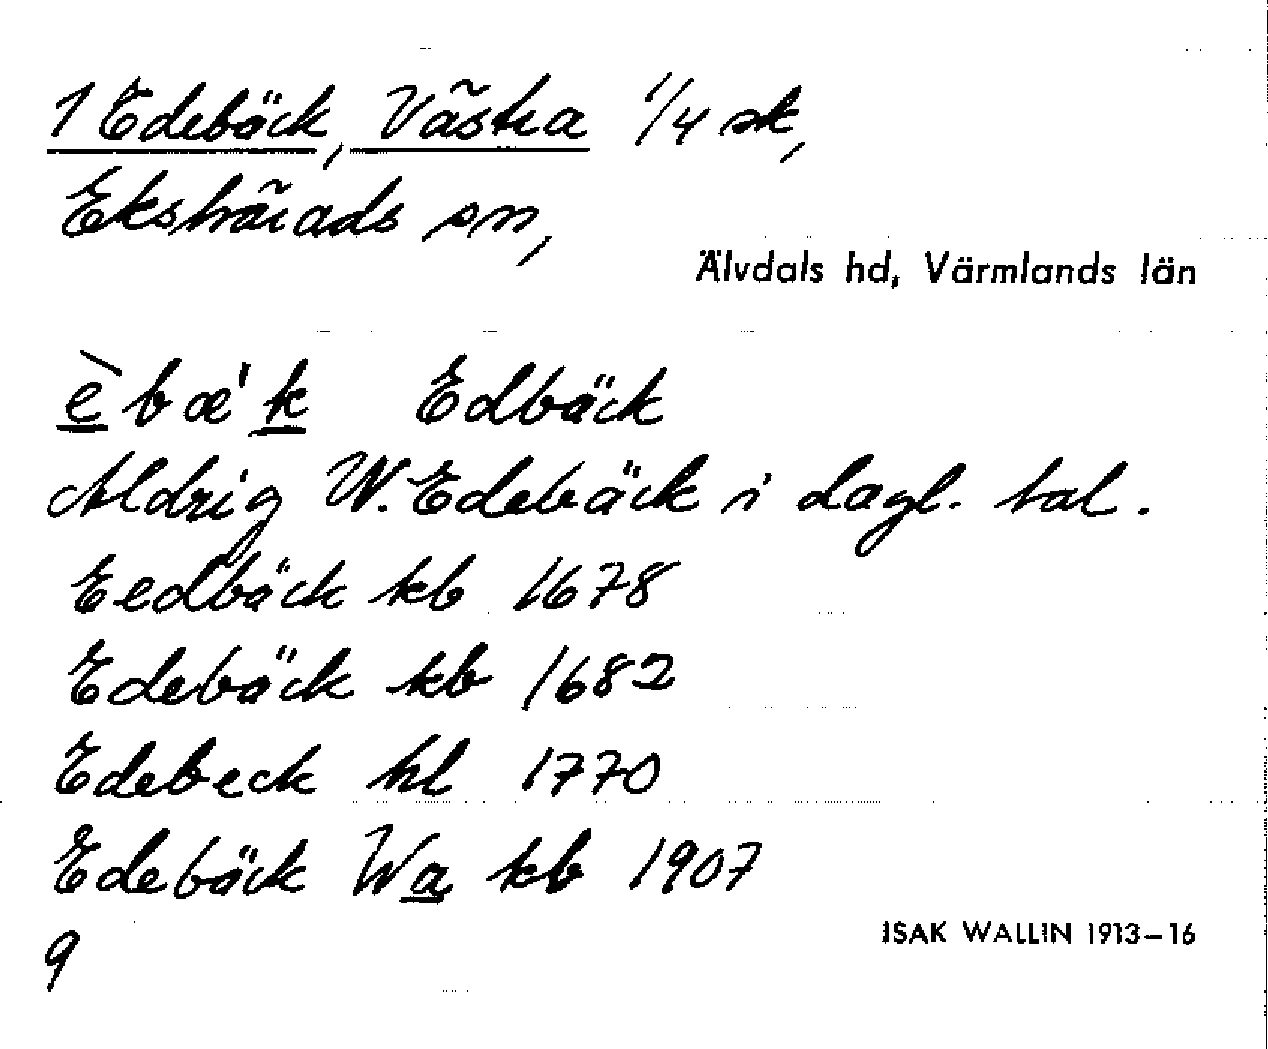 1 Edebäck, Västra 1/4 sk,
Ekshärads sn,
Älvdals hd, Värmlands län
è bæ' k Edbäck
Aldrig W. Edebäck i dagl. tal.
Eedbäck kb 1678
Edebäck kb 1682
Edebeck hl 1770
Edebäck Wa kb 1907
9
ISAK WALLIN 1913–16